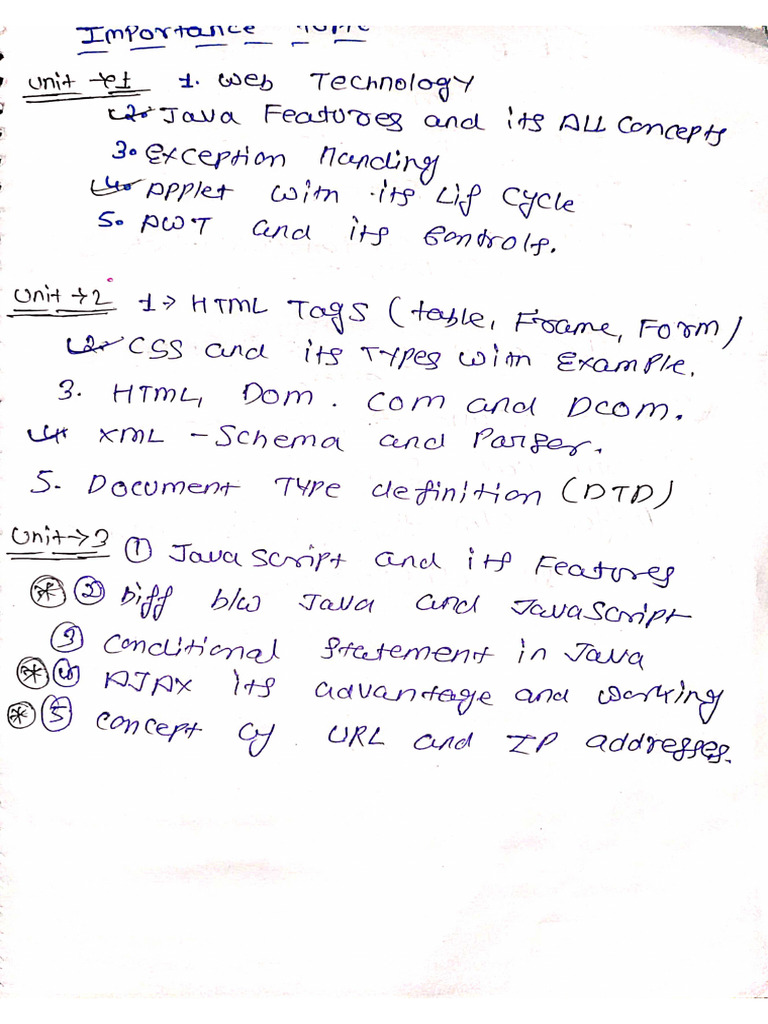 Importance Topic
Unit → 1 1. Web Technology
2. Java Features and its ALL Concepts
3. Exception Handling
4. Applet with its Lif Cycle
5. AWT and its Controls.
Unit → 2 1 → HTML Tags (table, Frame, Form)
2. CSS and its Types with Example.
3. HTML, Dom. COM and DCOM.
4. XML - Schema and Parser.
5. Document Type definition (DTD)
Unit → 3 ① JavaScript and its Features
* ② Diff b/w Java and JavaScript
③ Conditional Statement in Java
* ④ AJAX its advantage and working
* ⑤ Concept of URL and IP addresses.